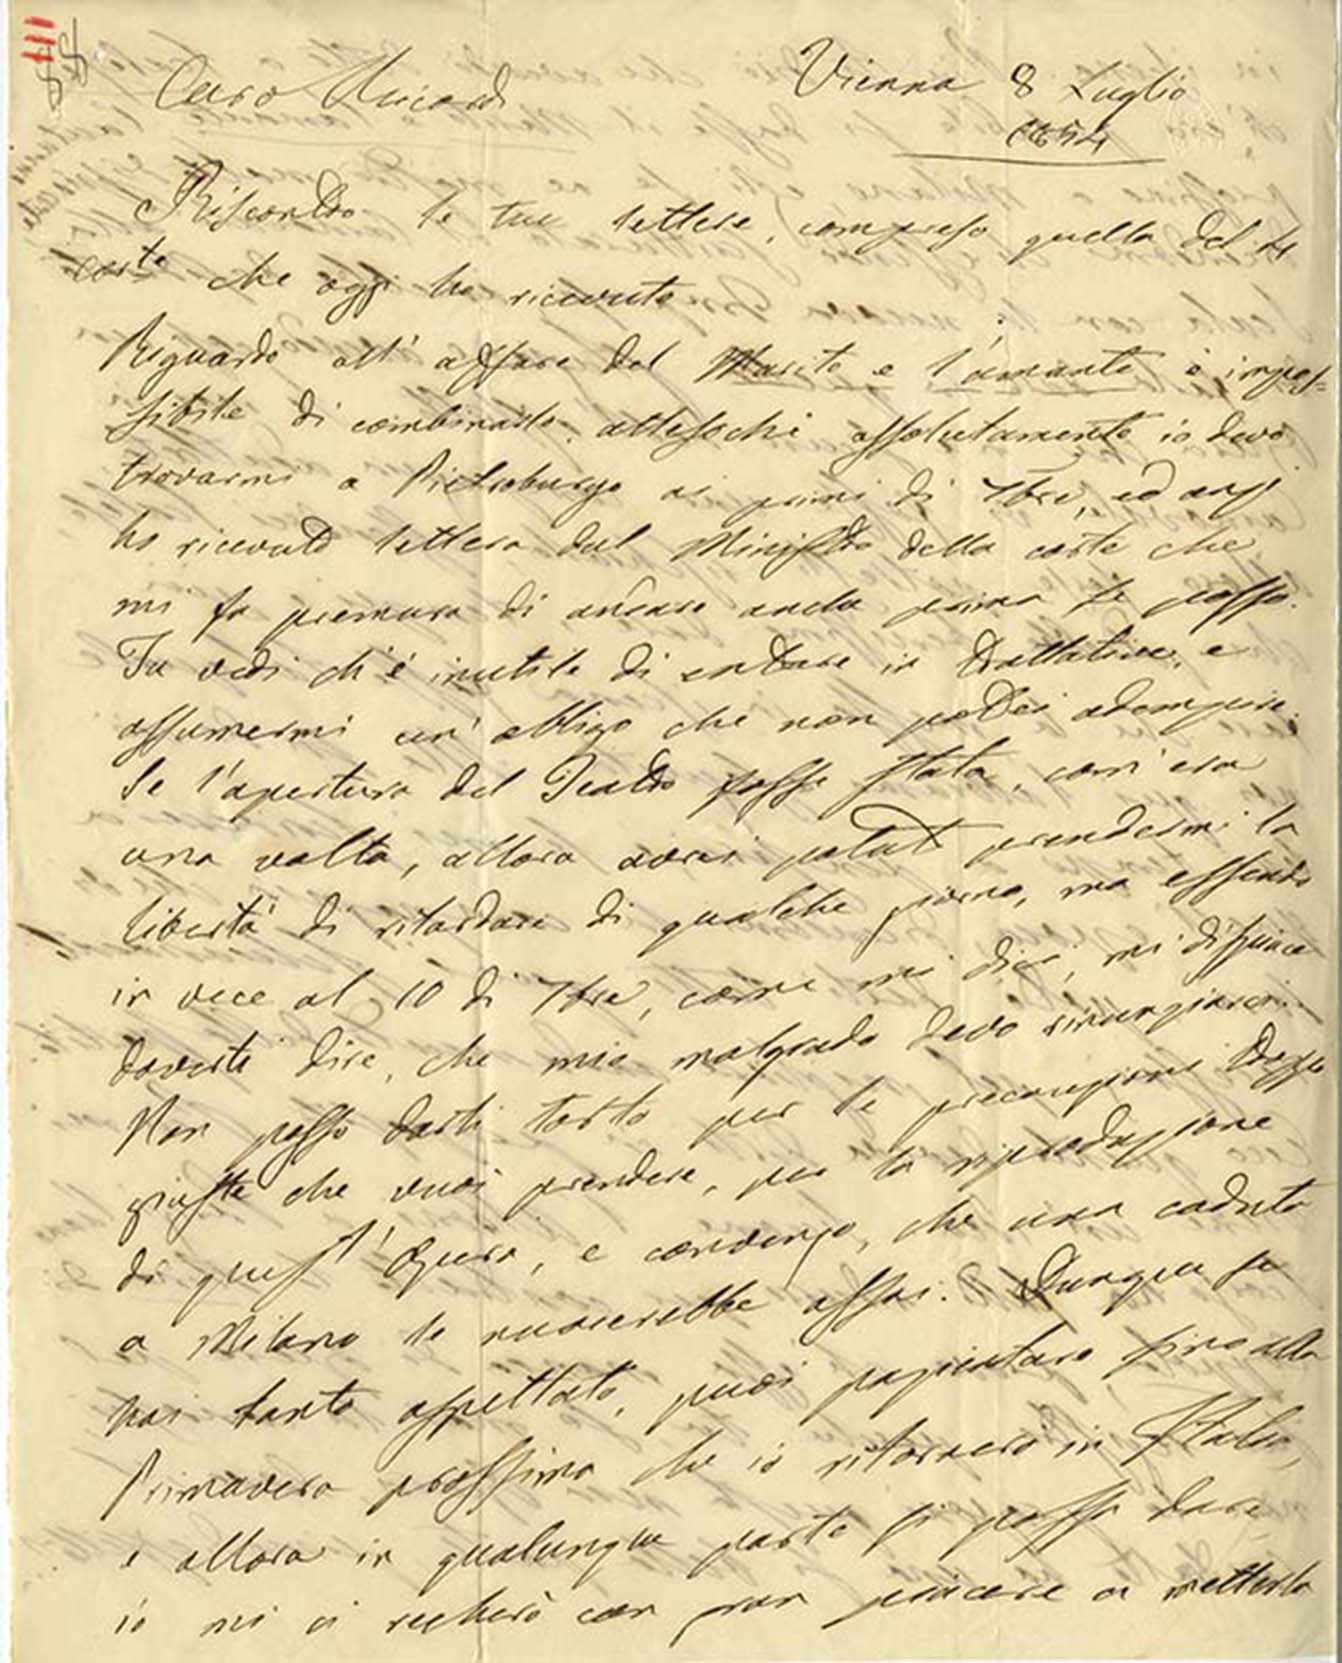 Vienna 8 Luglio
1854
Caro Ricordi
Riscontro le tue lettere, compreso quella del 4
corr.te che oggi ho ricevuto
Riguardo all' affare del Marito e l'amante è impos=
sibile di combinarlo, attesochè assolutamente io devo
trovarmi a Pietroburgo ai primi di 7bre, ed anzi
ho ricevuto lettera dal Ministro della corte che
mi fa premura di andare anche prima se posso.
Tu vedi ch'è inutile di entrare in trattative, e
assumermi un' obbligo che non potrei adempire.
Se l'apertura del Teatro fosse stata, com'era
una volta, allora avrei potuto prendermi la
libertà di ritardare di qualche giorno, ma essendo
in vece al 10 di 7bre, come mi dici, mi dispiace
doverti dire, che mio malgrado devo rinunziarci.
Non posso darti torto per le precauzioni troppo
giuste che vuoi prendere, per la riproduzione
di quest' Opera, e convengo, che una caduta
a Milano le nuocerebbe assai. Dunque se
hai tanto aspettato, puoi pazientare sino alla
Primavera prossima che io ritornerò in Italia,
e allora in qualunque parte si possa dare
io mi ci recherò con gran piacere a metterla